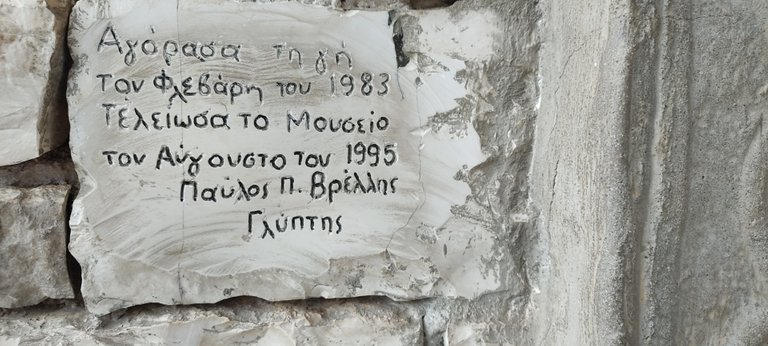 Αγόρασα τη γή
τον Φλεβάρη του 1983
Τέλείωσα το Μουσείο
τον Αύγουστο του 1995
Παύλος Π. Βρέλλης
Γλύπτης